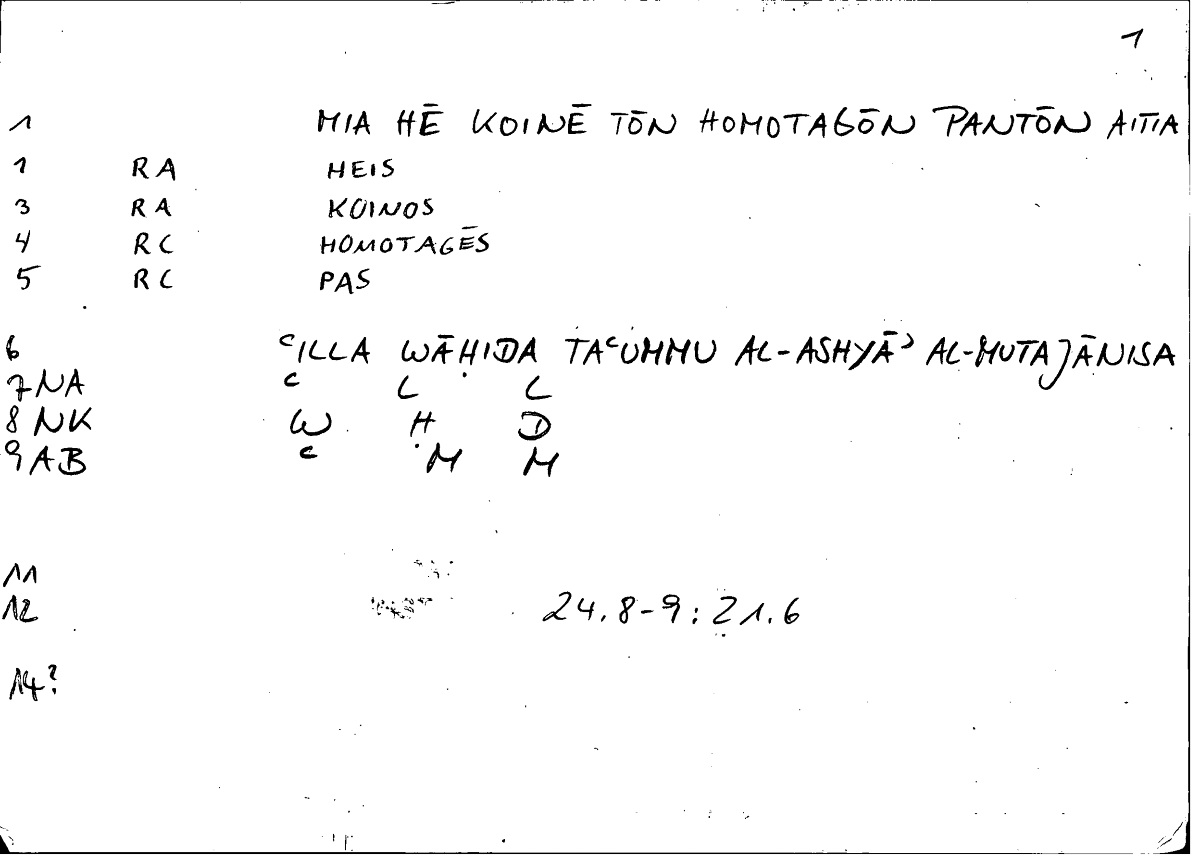 1
1 MIA HĒ KOINĒ TŌN HOMOTAGŌN PANTŌN AITIA
1 RA HEIS
3 RA KOINOS
4 RC HOMOTAGĒS
5 RC PAS
6 ʿILLA WĀḤIDA TAʿUMMU AL-ASHYĀʾ AL-MUTAJĀNISA
7 NA ʿ L L
8 NK W Ḥ D
9 AB ʿ M M
11
12 24.8-9 : 21.6
14?